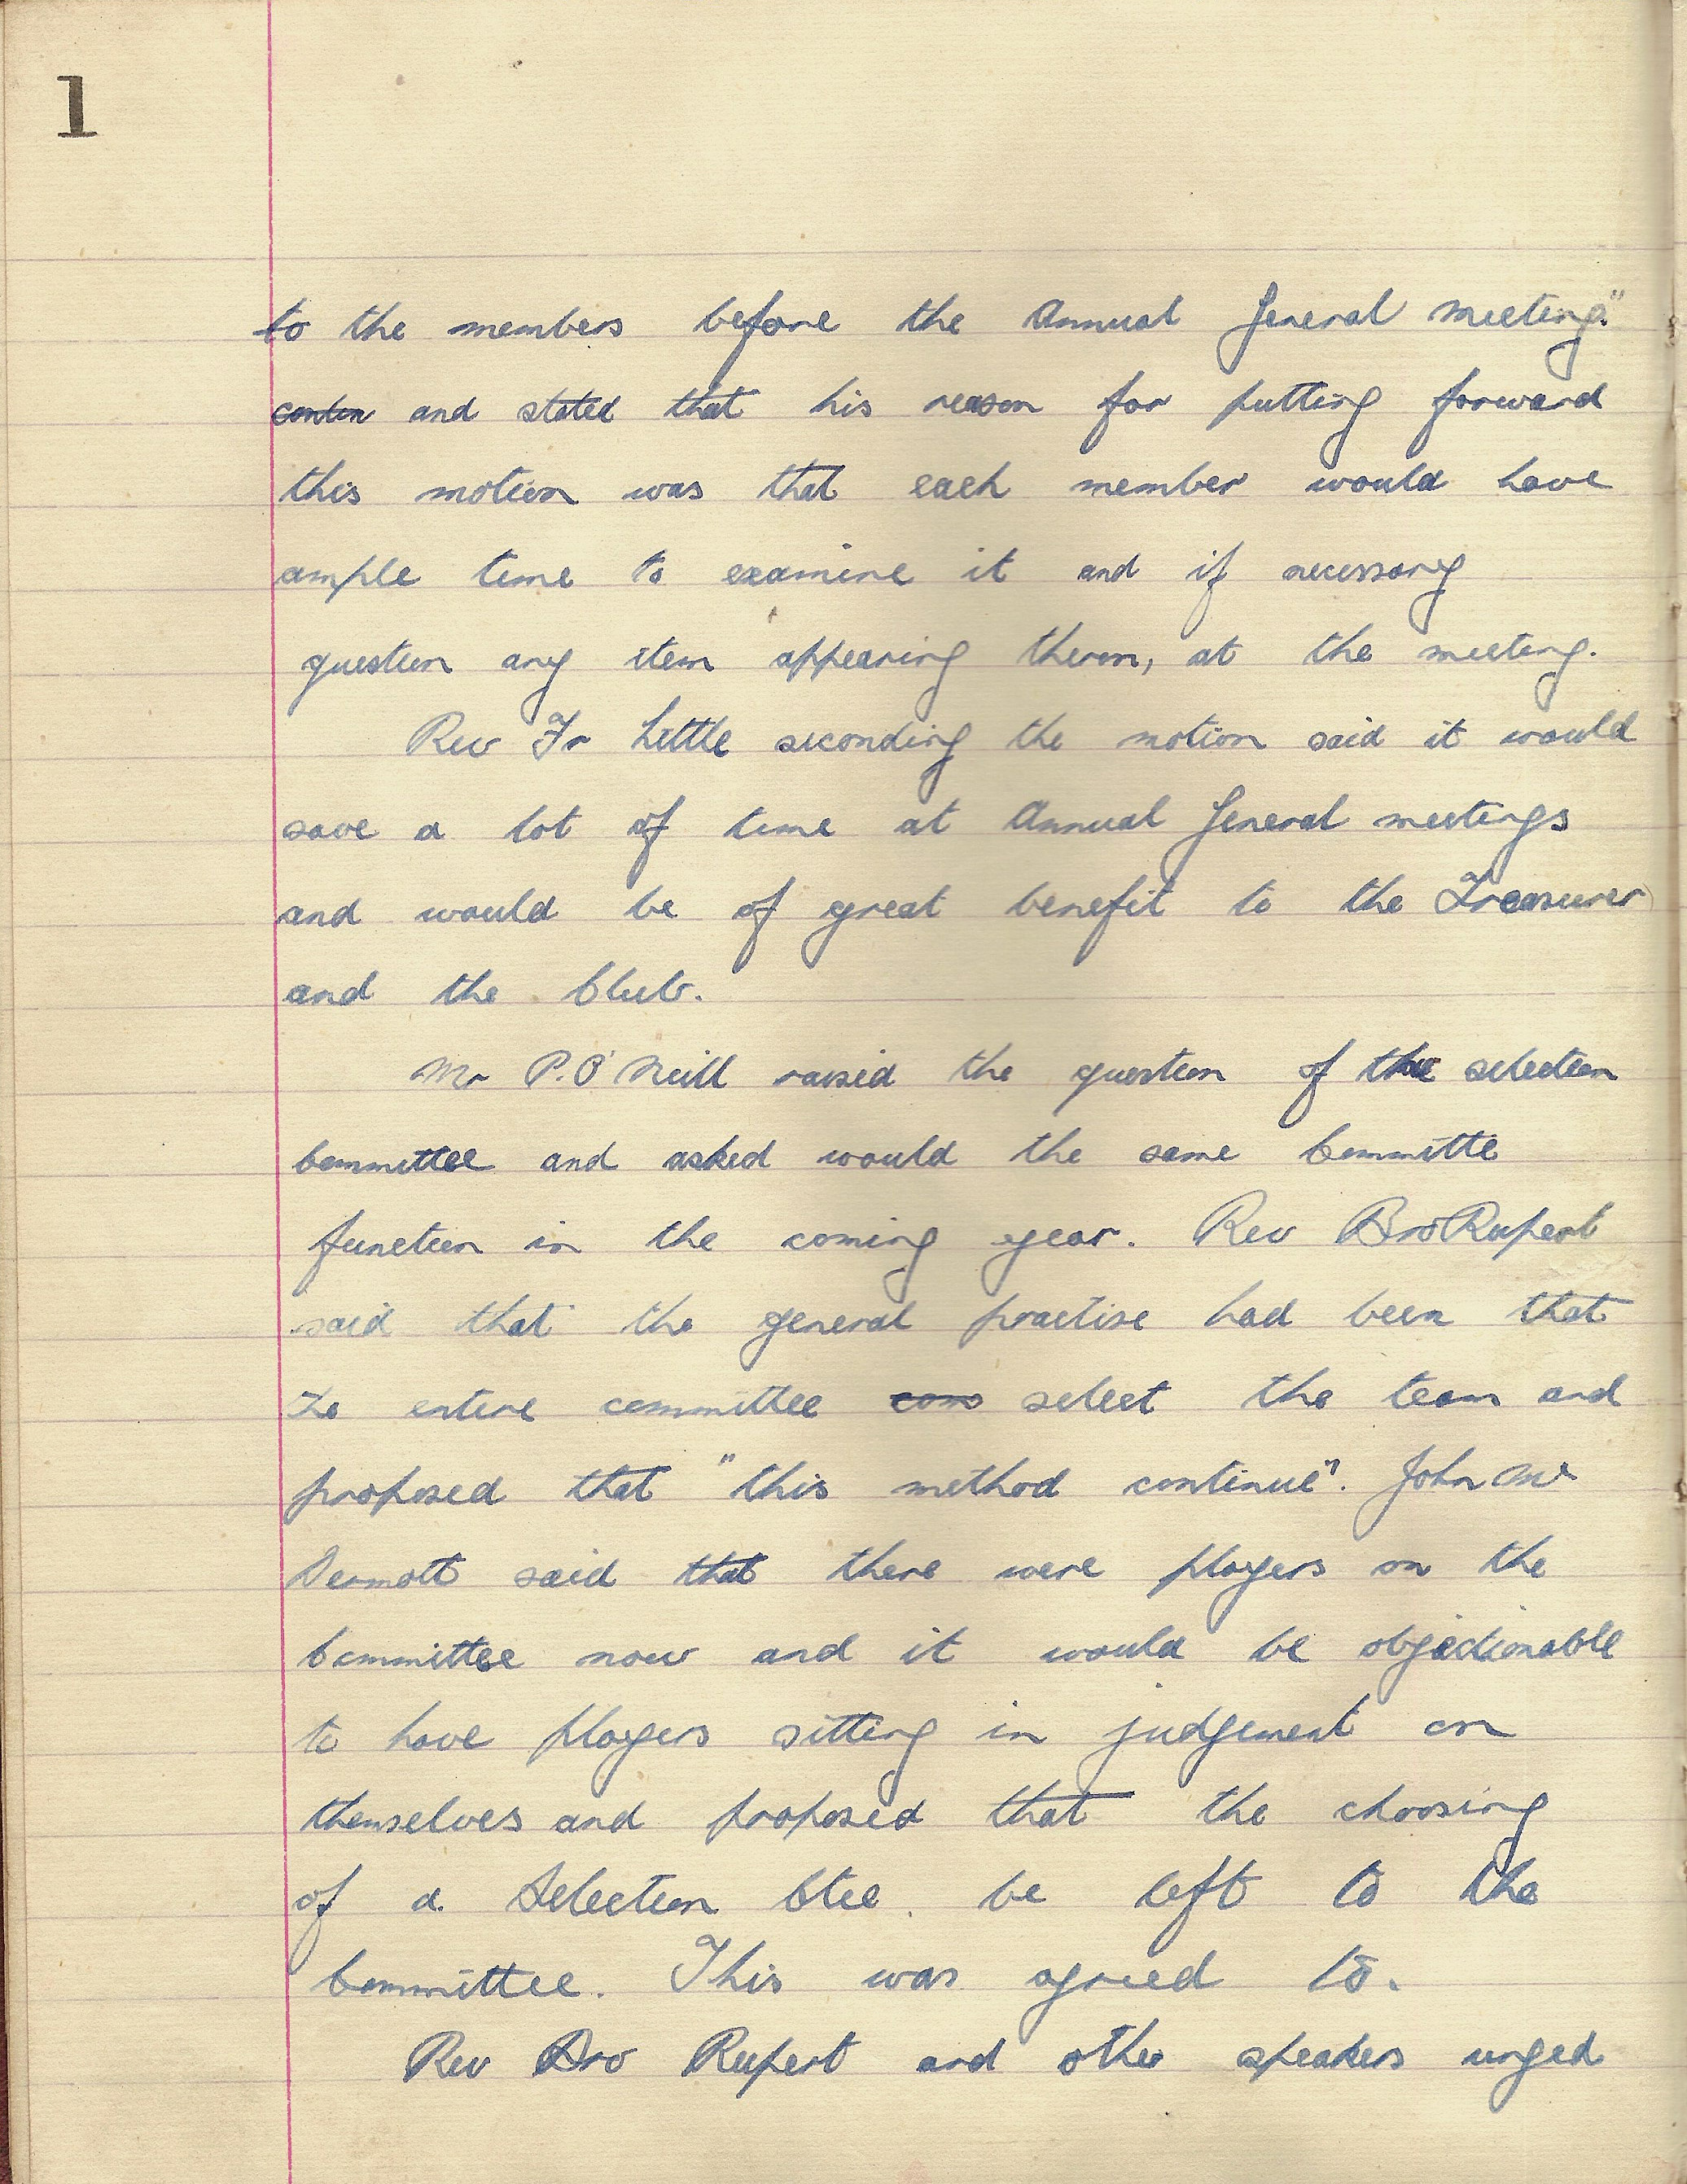 1
to the members before the Annual General Meeting."
conten and stated that his reason for putting forward
this motion was that each member would have
ample time to examine it and if necessary
question any item appearing theron, at the meeting.
Rev Fr Little seconding the motion said it would
save a lot of time at Annual General meetings
and would be of great benefit to the Treasurer
and the Club.
Mr P.O'Neill raised the question of the selection
Committee and asked would the same Committe
function in the coming year. Rev Bro Rupert
said that the general practise had been that
the entire committee com select the team and
proposed that "this method continue". John Mc
Dermott said that there were players on the
Committee now and it would be objectionable
to have players sitting in judgement on
themselves and proposed that the choosing
of a Selection Ctee. be left to the
Committee. This was agreed to.
Rev Bro Rupert and other speakers urged